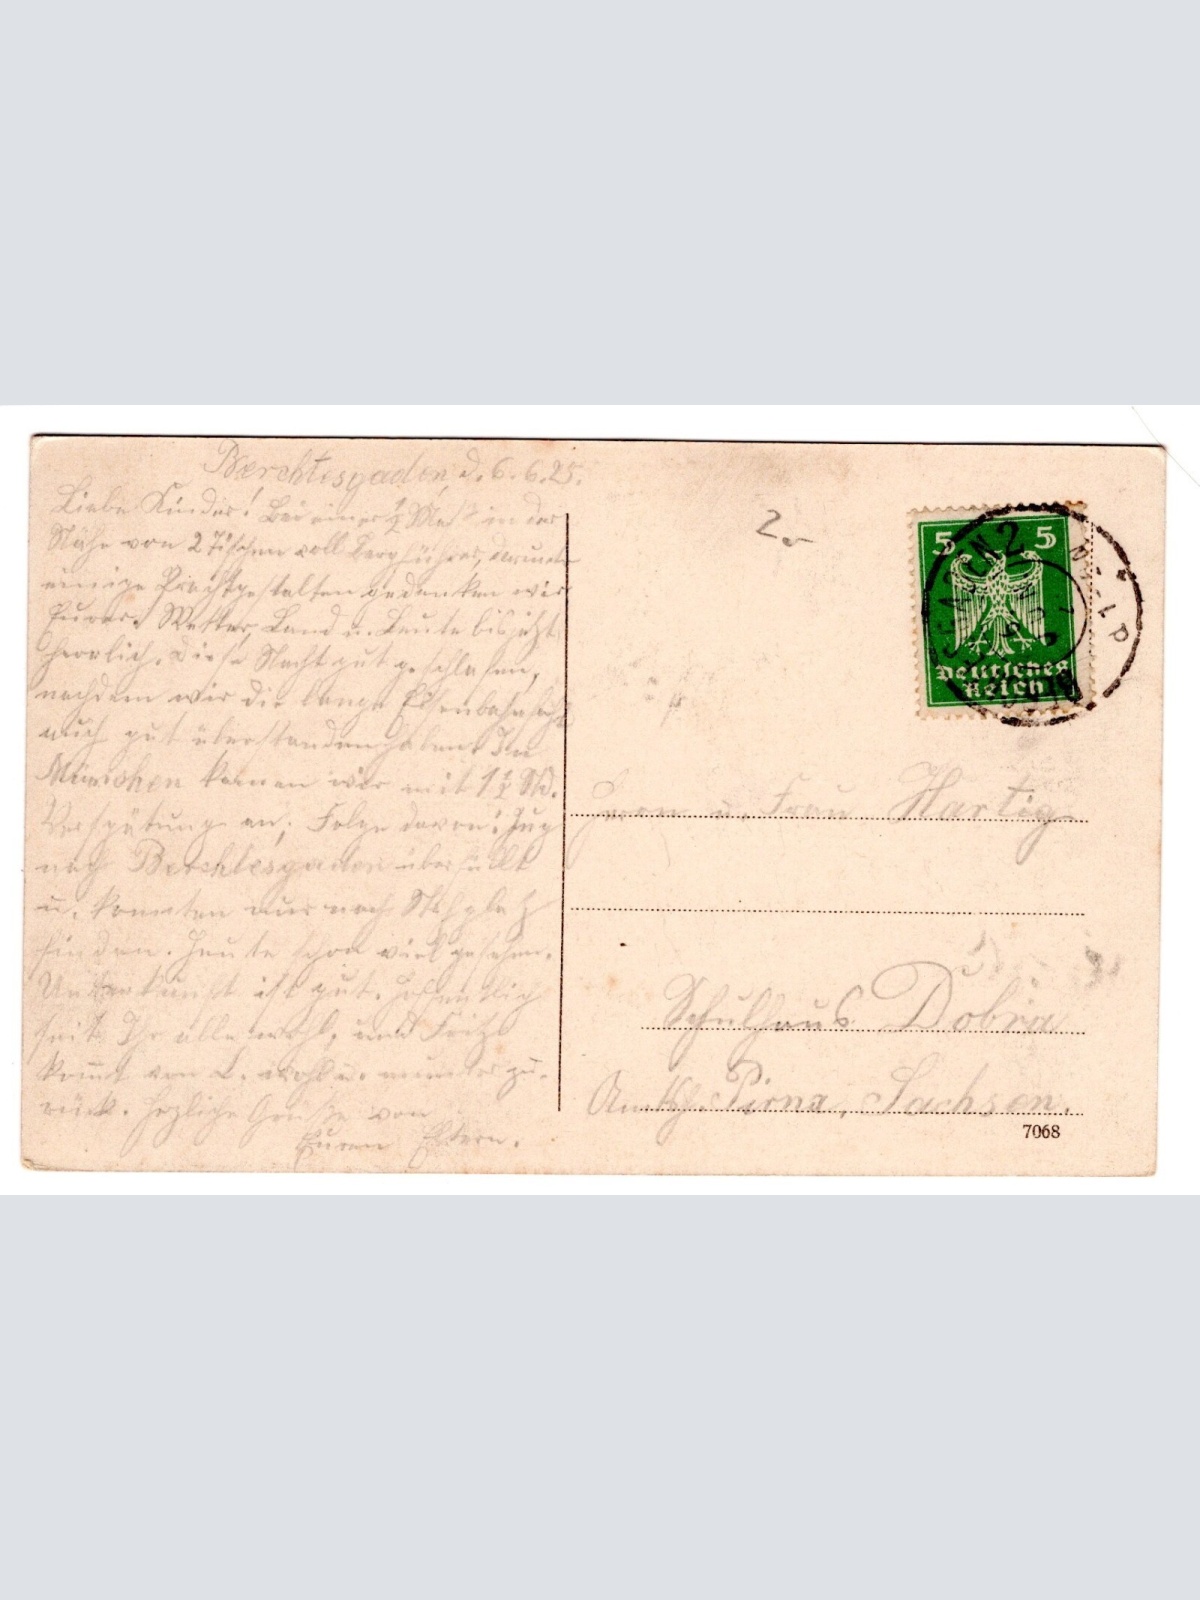 Berchtesgaden, d. 6.6.25.
Liebe Kinder! Bei einer ½ Maß in der
Nähe von 2 Tischen voll Bergführer, darunter
einige Prachtgestalten gedenken wir
Eurer. Wetter, Land u. Leute bis jetzt
herrlich. Diese Nacht gut geschlafen,
nachdem wir die lange Eisenbahnfahrt
auch gut überstanden haben. In
München kamen wir mit 1½ Std.
Verspätung an; Folge davon: Zug
nach Berchtesgaden überfüllt
u. konnten nur noch Stehplatz
finden. Heute schon viel gesehen.
Unterkunft ist gut. Hoffentlich
seit Ihr alle wohl, und Fritz
kommt von L. wohl u. munter zu-
rück. Herzliche Grüße von
Euren Eltern.
2.-
5 5
Deutsches
Reich
Herrn u. Frau Hartig
Schulhaus Dobra
Amtsh. Pirna, Sachsen.
7068